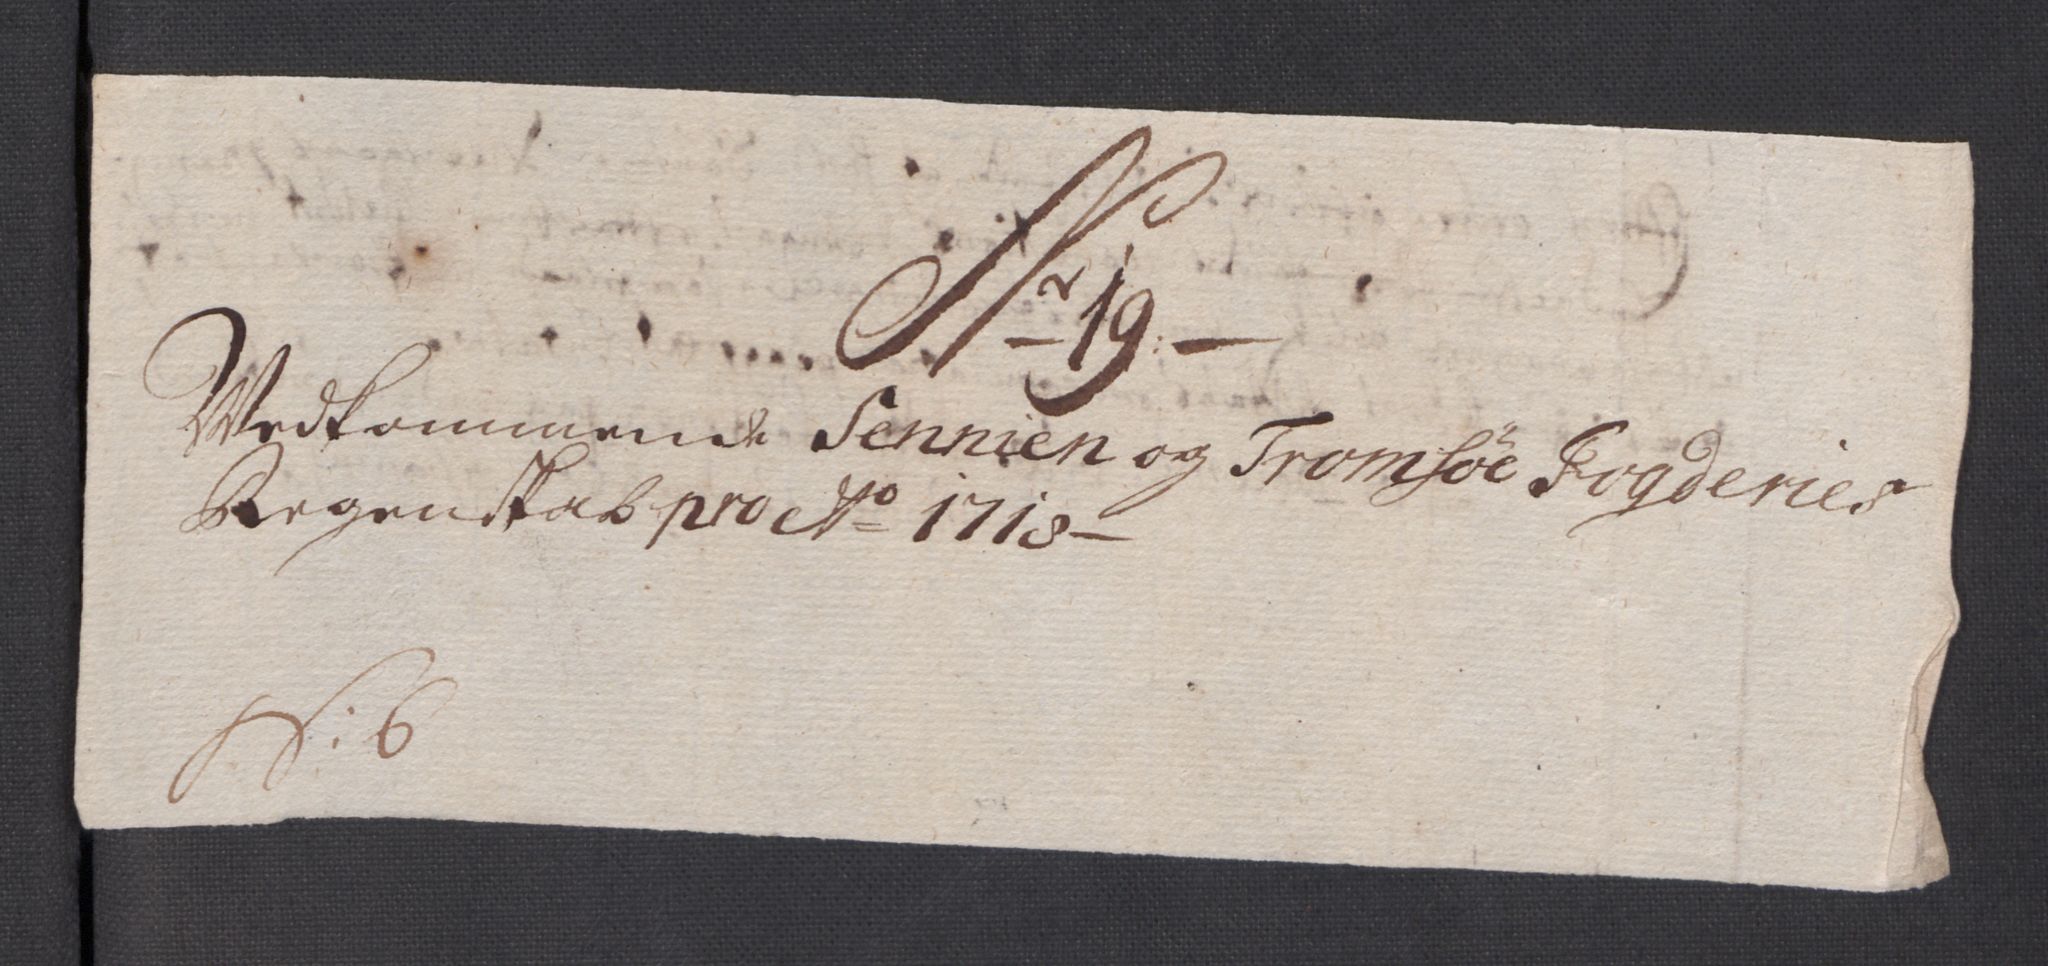 Nr 19.
Wedkommende Sennien og Tromsöe Fogderies
Regenskab pro Ao 1718
N: 6